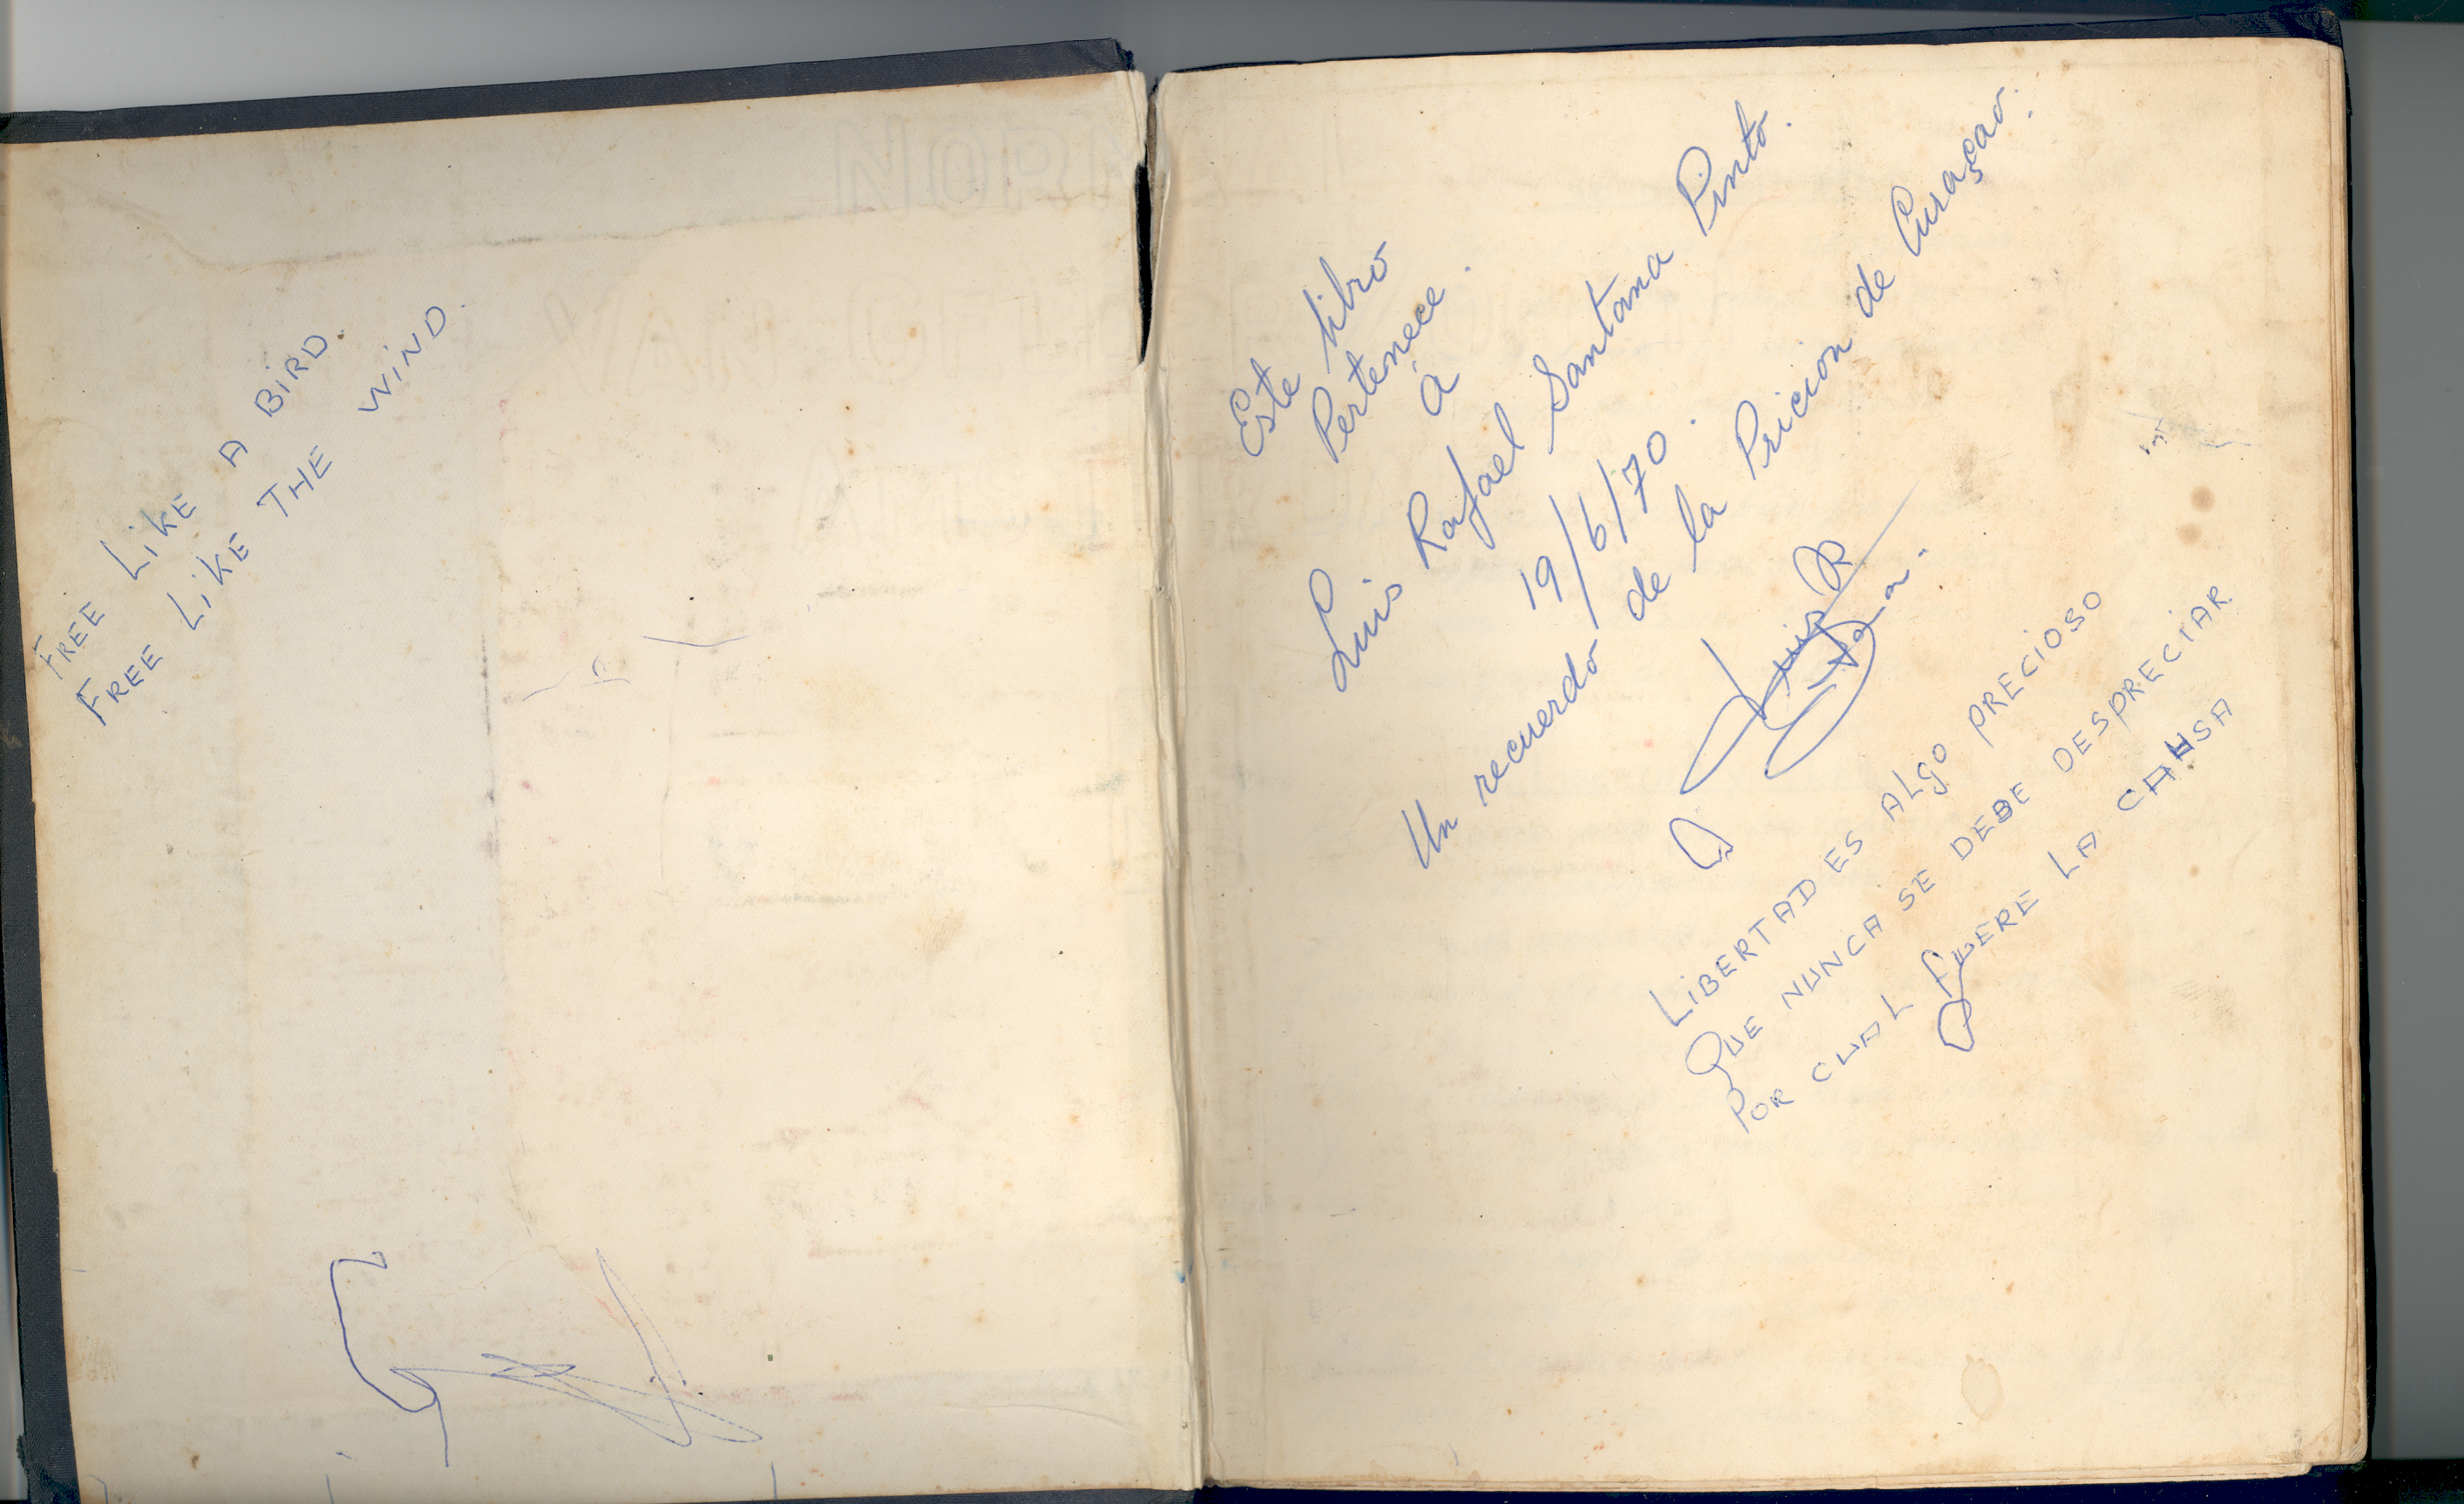 FREE LiKE A BiRD.
FREE LiKE THE WiND.
Este libro
Pertenece.
a
Luis Rafael Santana Pinto.
19/6/70.
Un recuerdo de la Pricion de Curaçao.
Luis R
LiBERTAD ES ALgO PRECIOSO
QUE NUNCA SE DEBE DESPRECIAR
POR CUAL FUERE LA CAUSA